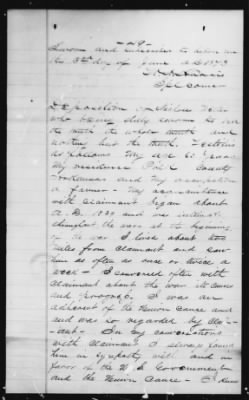 - 29 -
Sworn and subscribed to before me
the 3rd day of June A.D 1873
Spl Comr
Deposition of
who being duly sworn to tell
the truth the whole truth and
nothing but the truth. Testifies
as follows My age is
My residence Polk County
Arkansas and my occupation
a farmer - My acquaintance
with claimant began about
A. D. 18 and was intimate
throughout the war at the beginning
of the war I lived about two
miles from claimant and saw
him as often as once or twice a
week - I conversed often with
claimant about the war its causes
and progress. I was an
adherent of the Union Cause and
and was so regarded by claim-
ant - In my conversations
with claimant I always found
him in sympathy with and in
favor of the U. S. Government
and the Union Cause - I